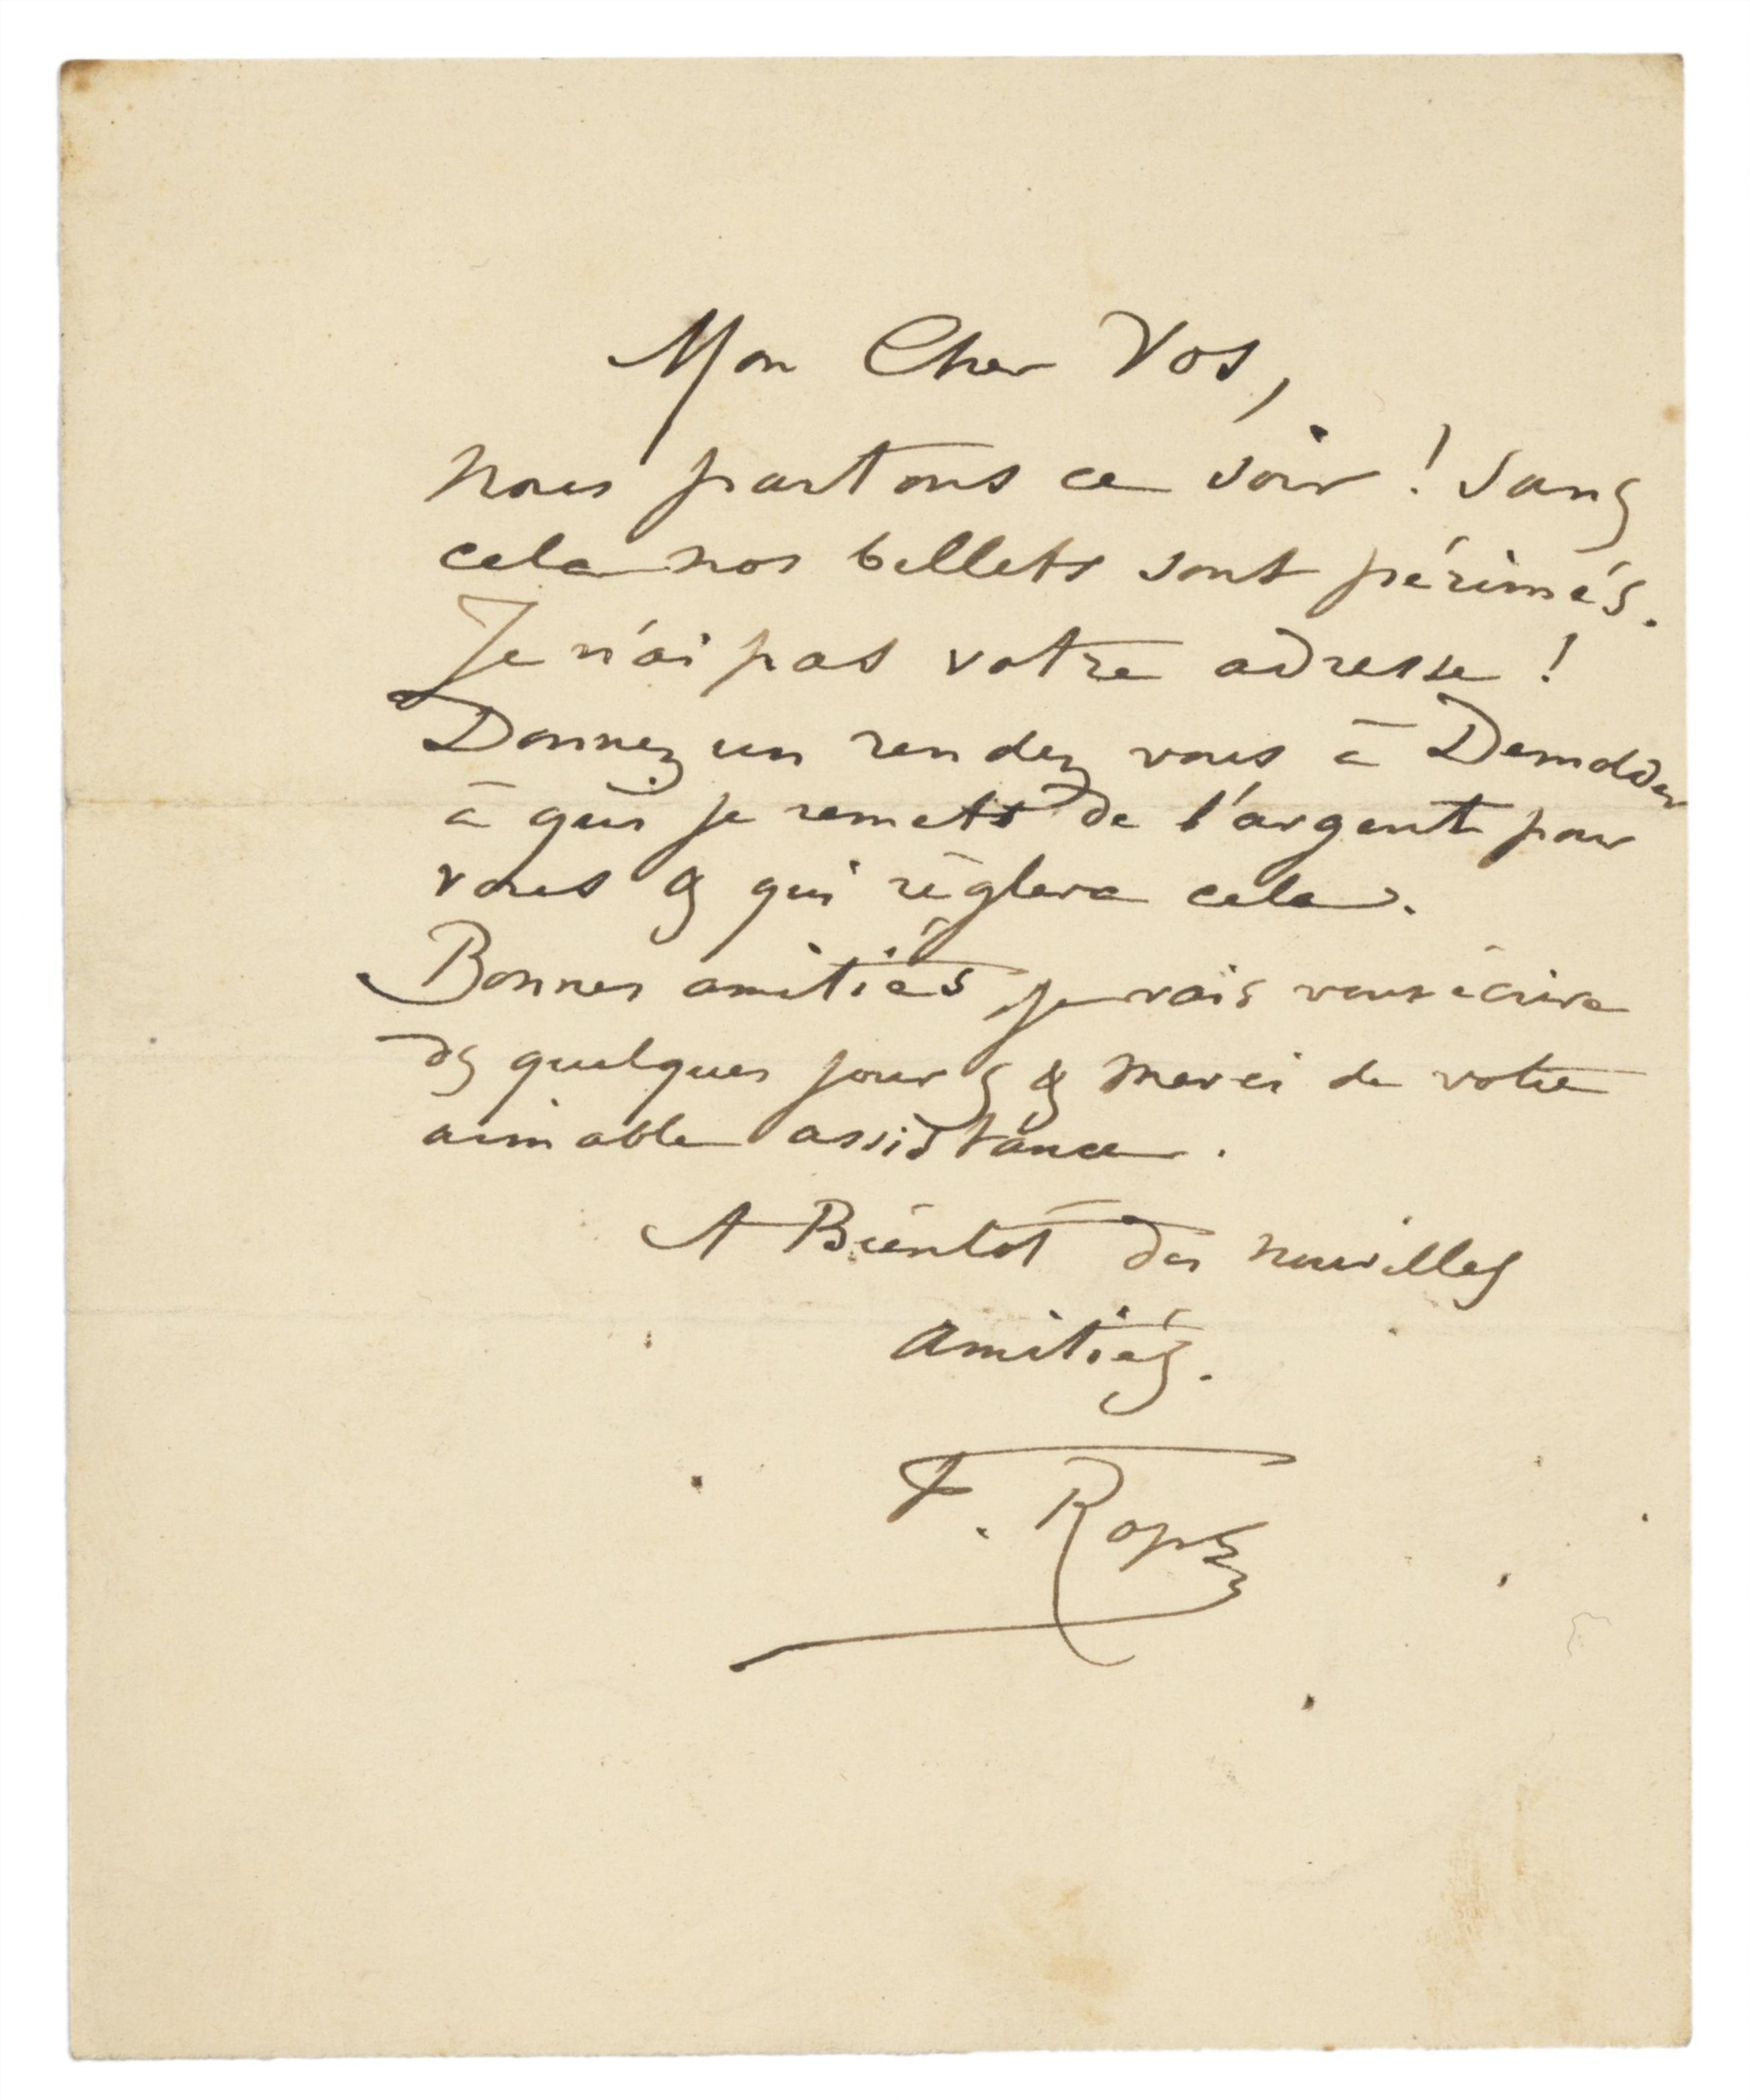 Mon Cher Vos,
Nous partons ce soir ! Sans
cela nos billets sont périmés.
Je n'ai pas votre adresse !
Donnez un rendez vous à Demolder
à qui je remets de l'argent pour
vous & qui règlera cela.
Bonnes amitiés je vais vous écrire
ds quelques jours & merci de votre
aimable assistance.
A Bientôt des nouvelles
Amitiés.
F. Rops